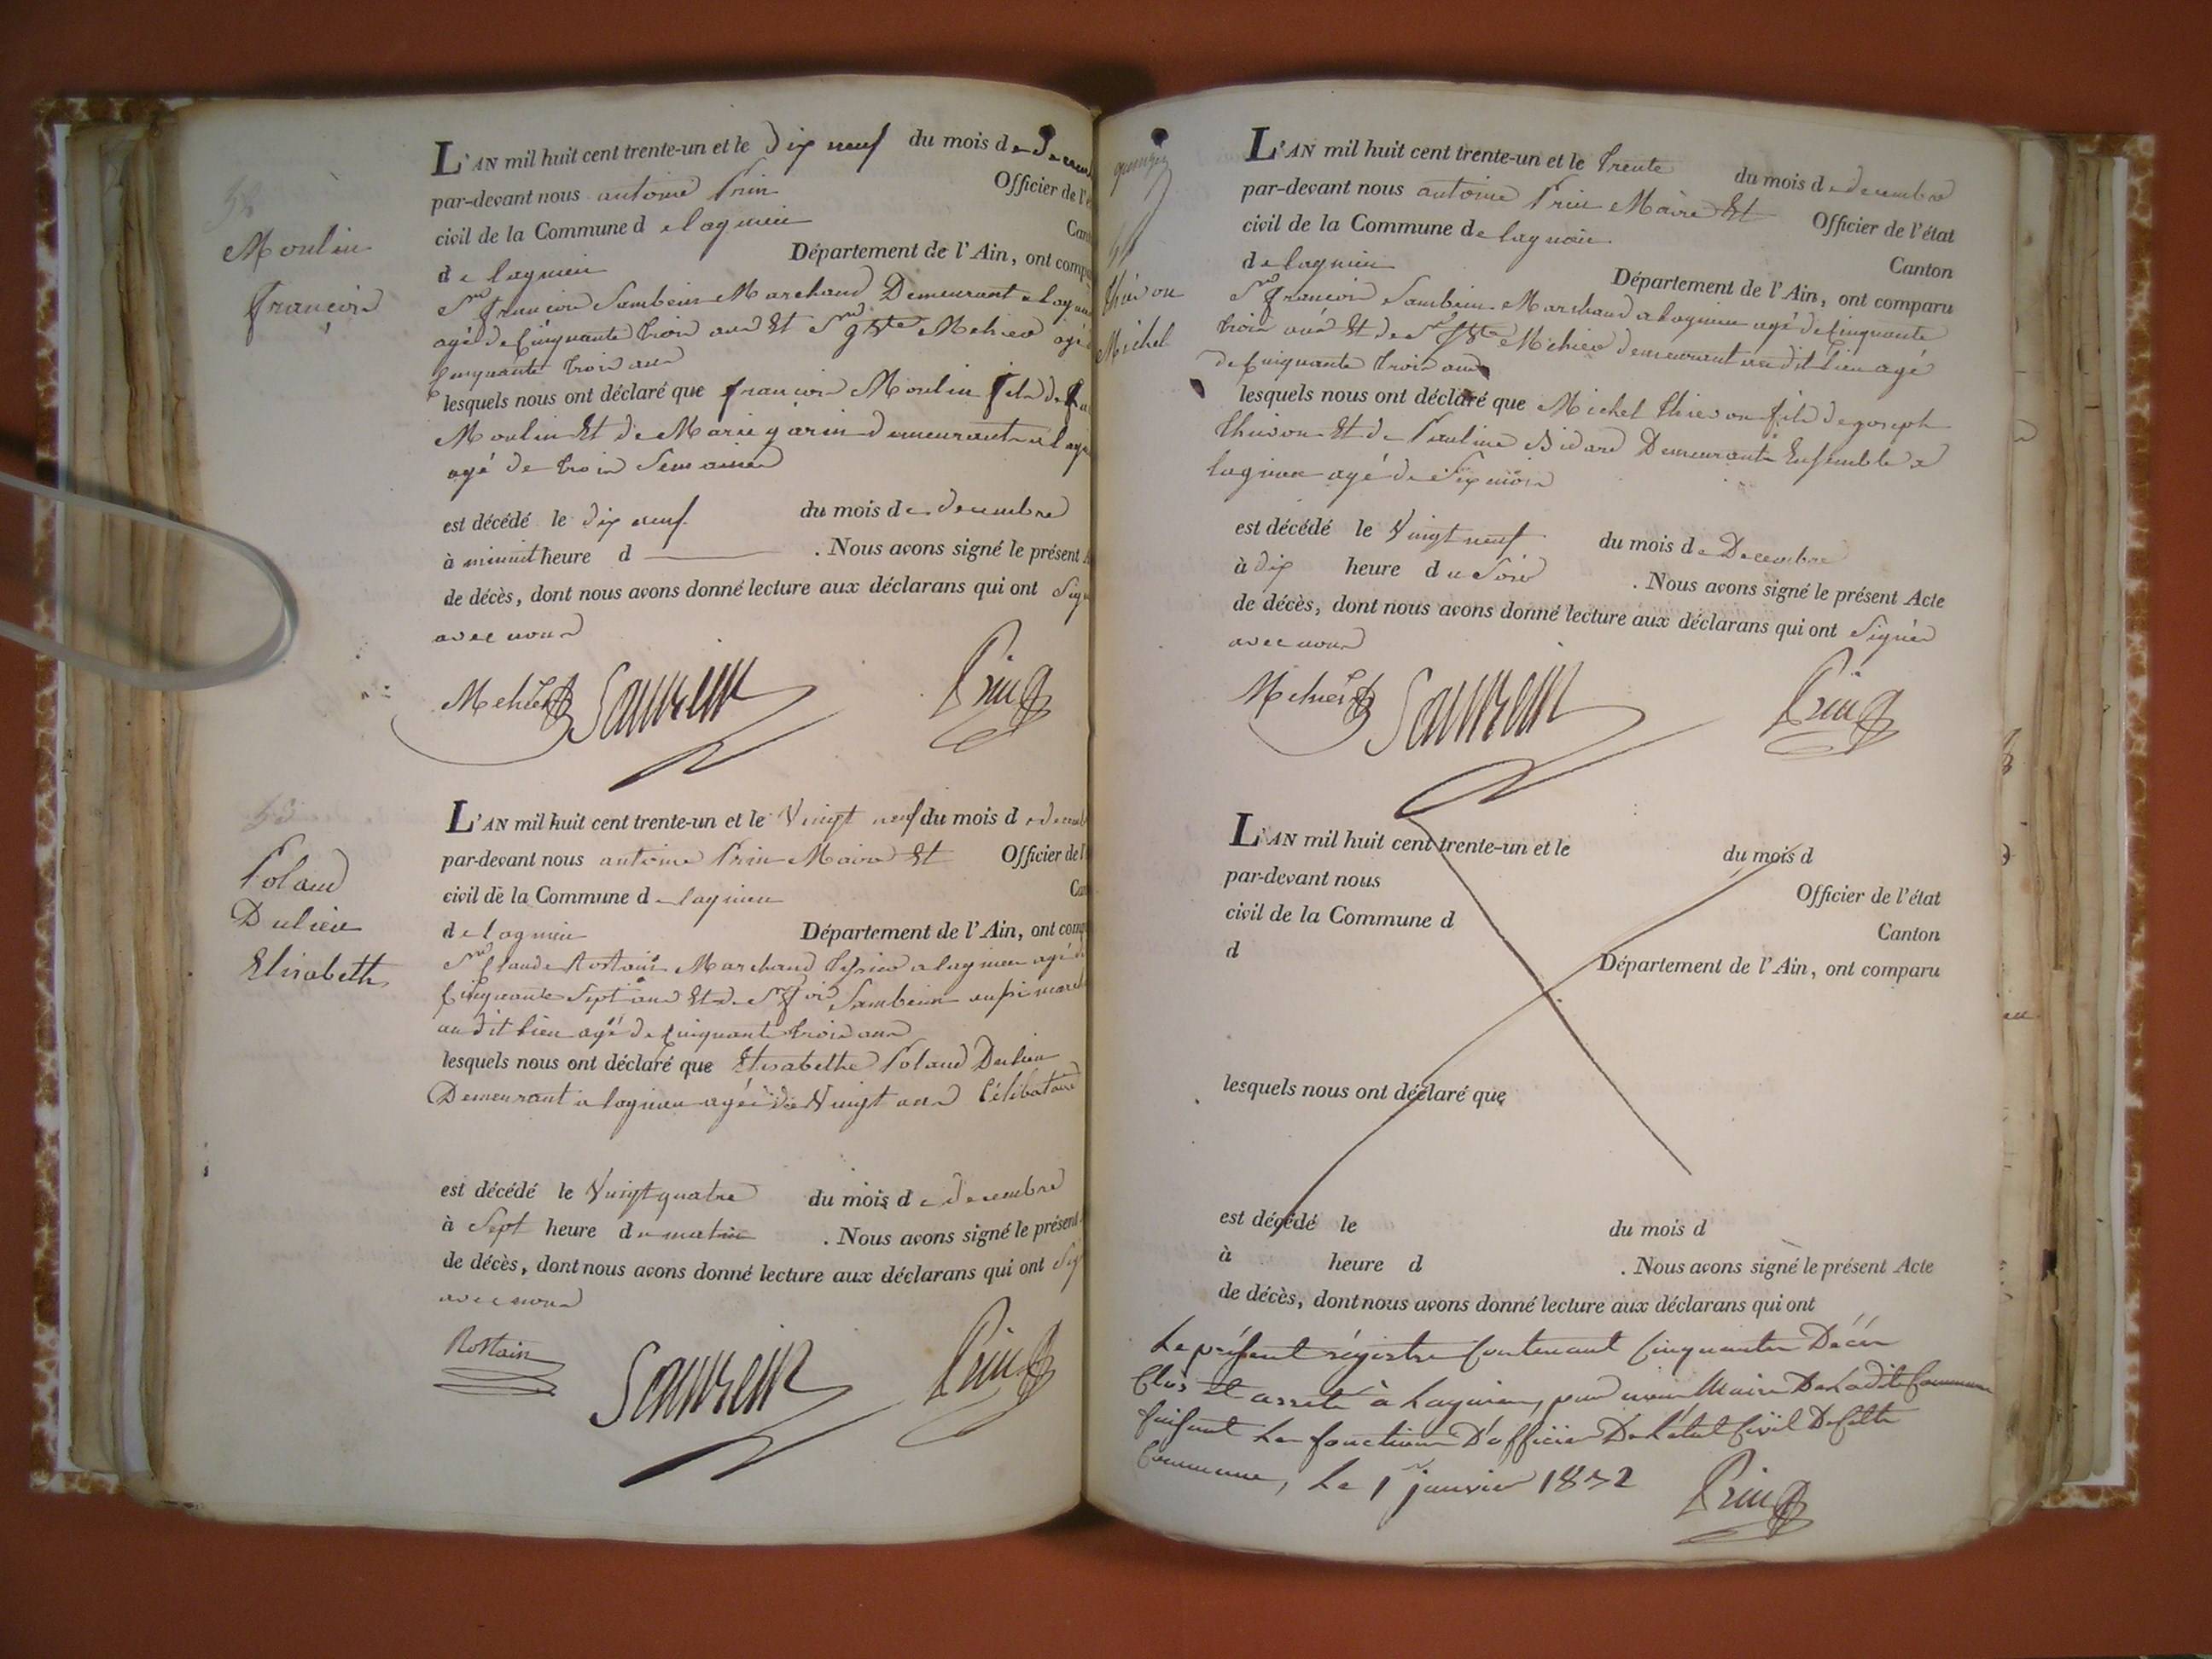 L'AN mil huit cent trente-un et le dix neuf du mois de
par-devant nous antoine Prin Officier de l'é
civil de la Commune d e lagnieu Can
de lagnieu Département de l'Ain, ont comp
Moulin
francois
Sr francois Sambein Marchand Demeurant a lagn
agé de Cinquante trois ans Et Sr Mehier agé
Cinquante trois ans
lesquels nous ont déclaré que francois Moulin fils de
Moulin Et de Marie garin demeurant a lag
agé de trois Semaines
est décédé le dix neuf du mois de decembre
à minuit heure d . Nous avons signé le présent
de décès, dont nous avons donné lecture aux déclarans qui ont Sig
avec nous
Mehier Sambein Prin
L'AN mil huit cent trente-un et le Vingt neuf du mois d e decemb
par-devant nous antoine Prin Maire Et Officier de l'
civil de la Commune d e lagnieu Can
de lagnieu Département de l'Ain, ont comp
Polaud
Dulieu
Elisabeth
Sr Claude Rostain Marchand a lagnieu agé d
Cinquante Sept ans Et de Sr fois Sambein march
audit lieu agé de Cinquante trois ans
lesquels nous ont déclaré que Elisabethe Polaud Dulieu
Demeurant a lagnieu agée de Vingt ans Célibataire
est décédé le Vingt quatre du mois d e decembre
à Sept heure du matin . Nous avons signé le présent
de décès, dont nous avons donné lecture aux déclarans qui ont Sig
avec nous
Rostain Sambein Prin
L'AN mil huit cent trente-un et le trente du mois d e decembre
par-devant nous antoine Prin Maire Et Officier de l'état
civil de la Commune de lagnieu Canton
de lagnieu Département de l'Ain, ont comparu
Michel
Sr francois Sambein Marchand a lagnieu agé de Cinquante
trois ans Et de Sr Mehier demeurant audit lieu agé
de Cinquante trois ans
lesquels nous ont déclaré que Michel fils de joseph
Et de Pauline Bidard Demeurant Ensemble a
lagnieu agé de Six mois
est décédé le Vingt neuf du mois de Decembre
à dix heure du Soir . Nous avons signé le présent Acte
de décès, dont nous avons donné lecture aux déclarans qui ont Signés
avec nous
Mehier Sambein Prin
L'AN mil huit cent trente-un et le du mois d
par-devant nous Officier de l'état
civil de la Commune d Canton
d Département de l'Ain, ont comparu
lesquels nous ont déclaré que
est décédé le du mois d
à heure d . Nous avons signé le présent Acte
de décès, dont nous avons donné lecture aux déclarans qui ont
Le présent régistre Contenant Cinquante Décès
Clos et arreté à Lagnieu, par nous Maire De Ladite Commune
faisant Les fonctions D'officier De L'état Civil De Cette
Commune, Le 1er janvier 1832 Prin